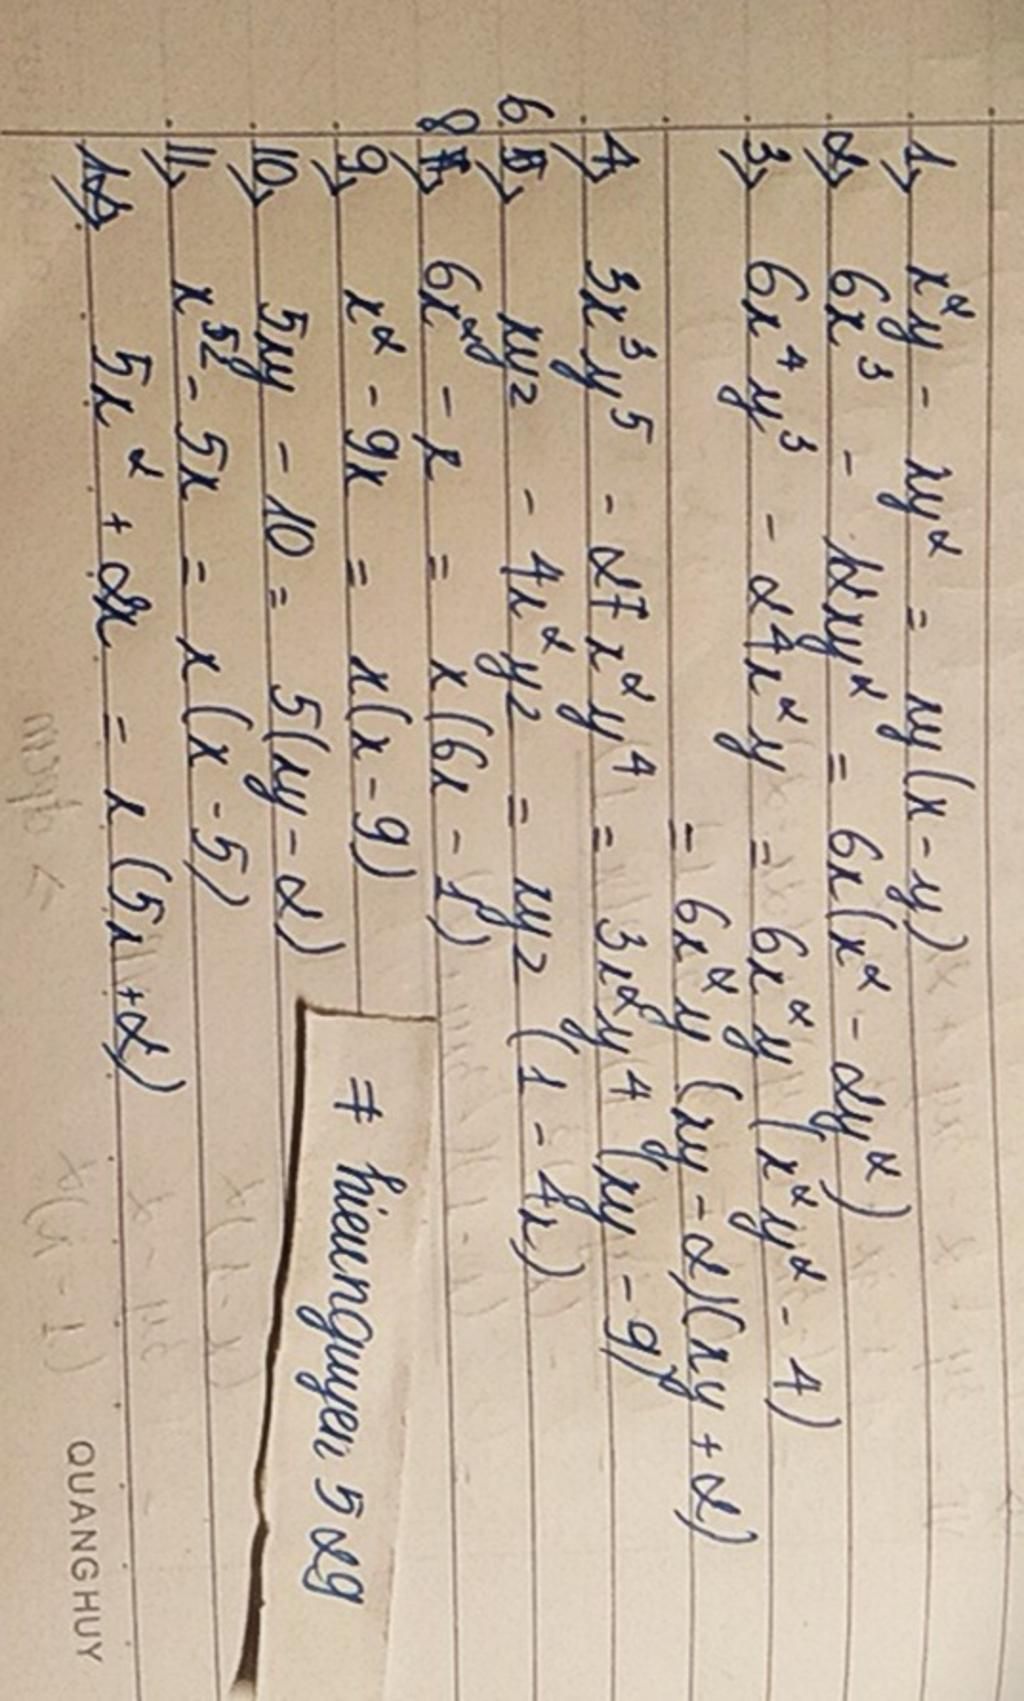 1, x²y - xy² = xy(x - y)
2, 6x³ - 12xy² = 6x(x² - 2y²)
3, 6x⁴y³ - 24x²y = 6x²y(x²y² - 4)
= 6x²y(xy - 2)(xy + 2)
4, 3x³y⁵ - 27x²y⁴ = 3x²y⁴(xy - 9)
6, xyz - 4x²yz = xyz(1 - 4x)
8, 6x² - x = x(6x - 1)
9, x² - 9x = x(x - 9)
10, 5xy - 10 = 5(xy - 2)
11, x² - 5x = x(x - 5)
12, 5x² + 2x = x(5x + 2)
# hieunguyen 529
QUANGHUY